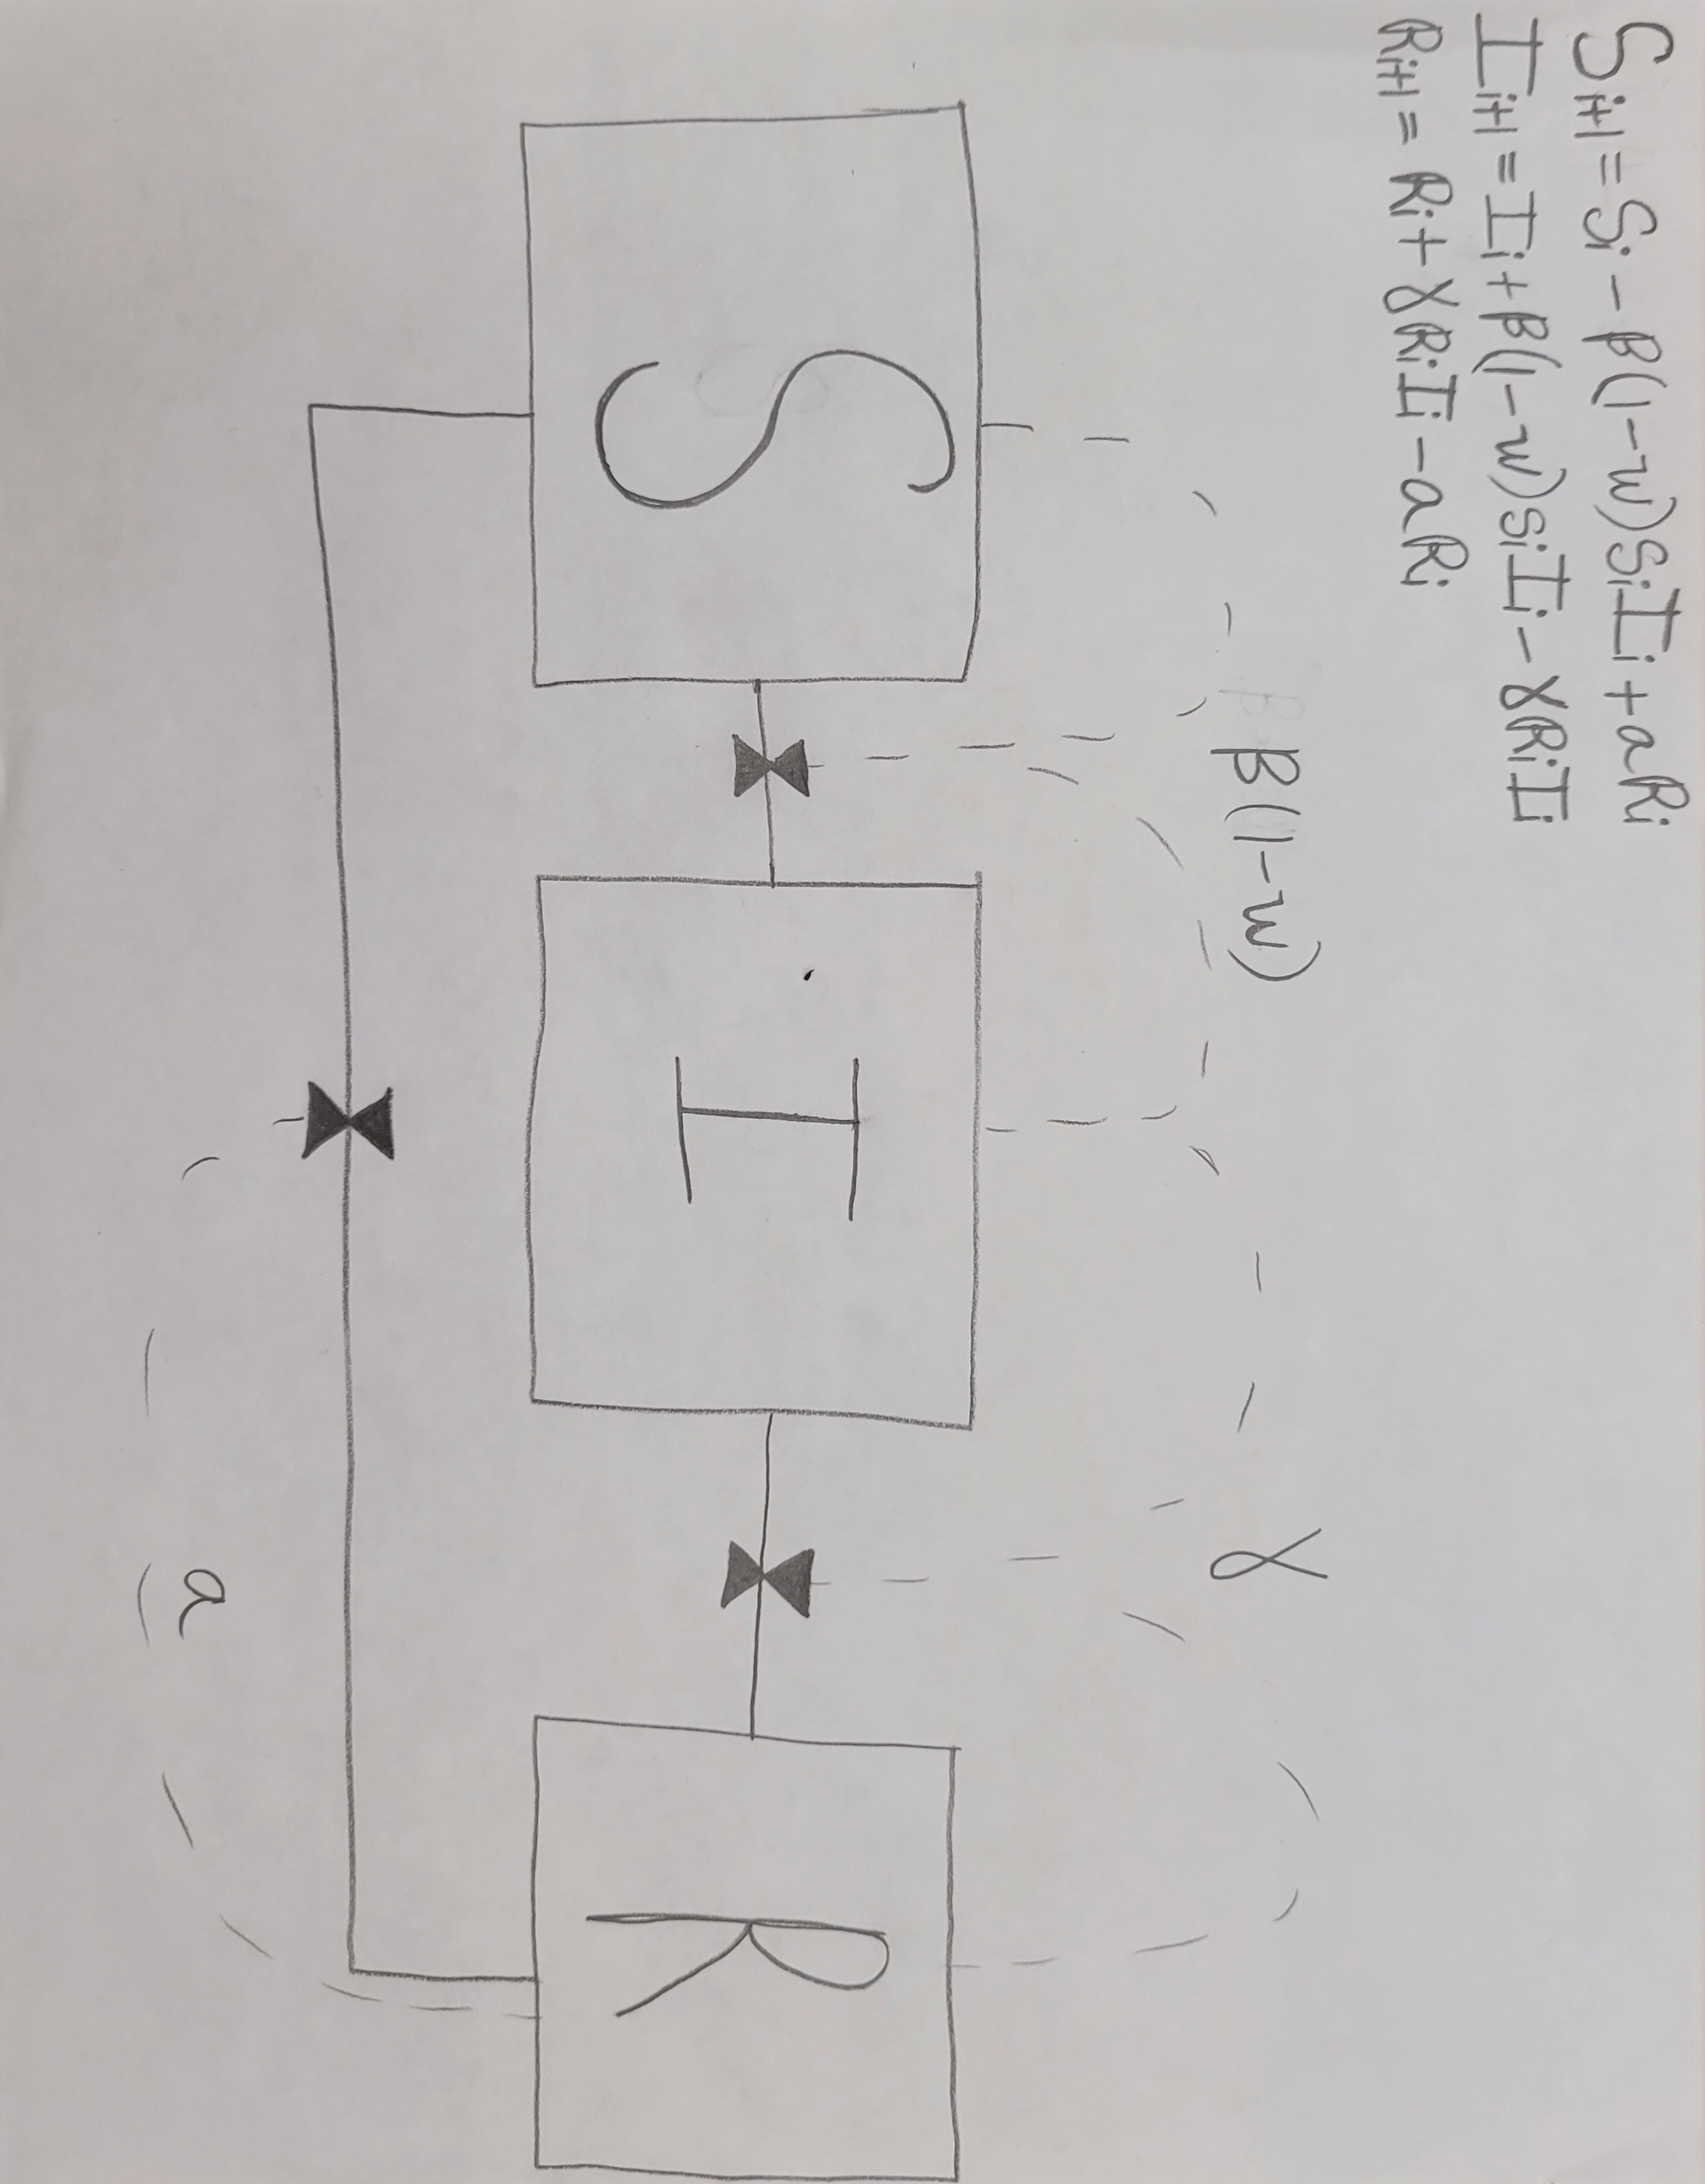 Si+1 = Si - β(1-w)SiIi + aRi
Ii+1 = Ii + β(1-w)SiIi - γRiIi
Ri+1 = Ri + γRiIi - aRi
β(1-w)
γ
S
I
R
a